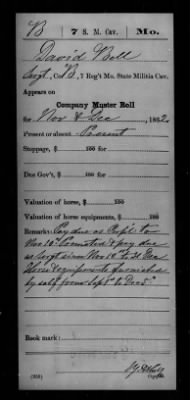 B | 7 S. M. Cav. | Mo.
David Bell
Sergt, Co. B, 7 Reg't Mo. State Militia Cav.
Appears on
Company Muster Roll
for Nov & Dec, 1862.
Present or absent Present
Stoppage, $ 100 for
Due Gov't, $ 100 for
Valuation of horse, $ 100
Valuation of horse equipments, $ 100
Remarks: Pay due as Corp'l to
Nov 10" Promoted & pay due
as Sergt since Nov 10" to 31 Dec
Horse & equipments furnished
by self from Sept 1" to Dec 5"
Book mark:
(358)
Copyist.